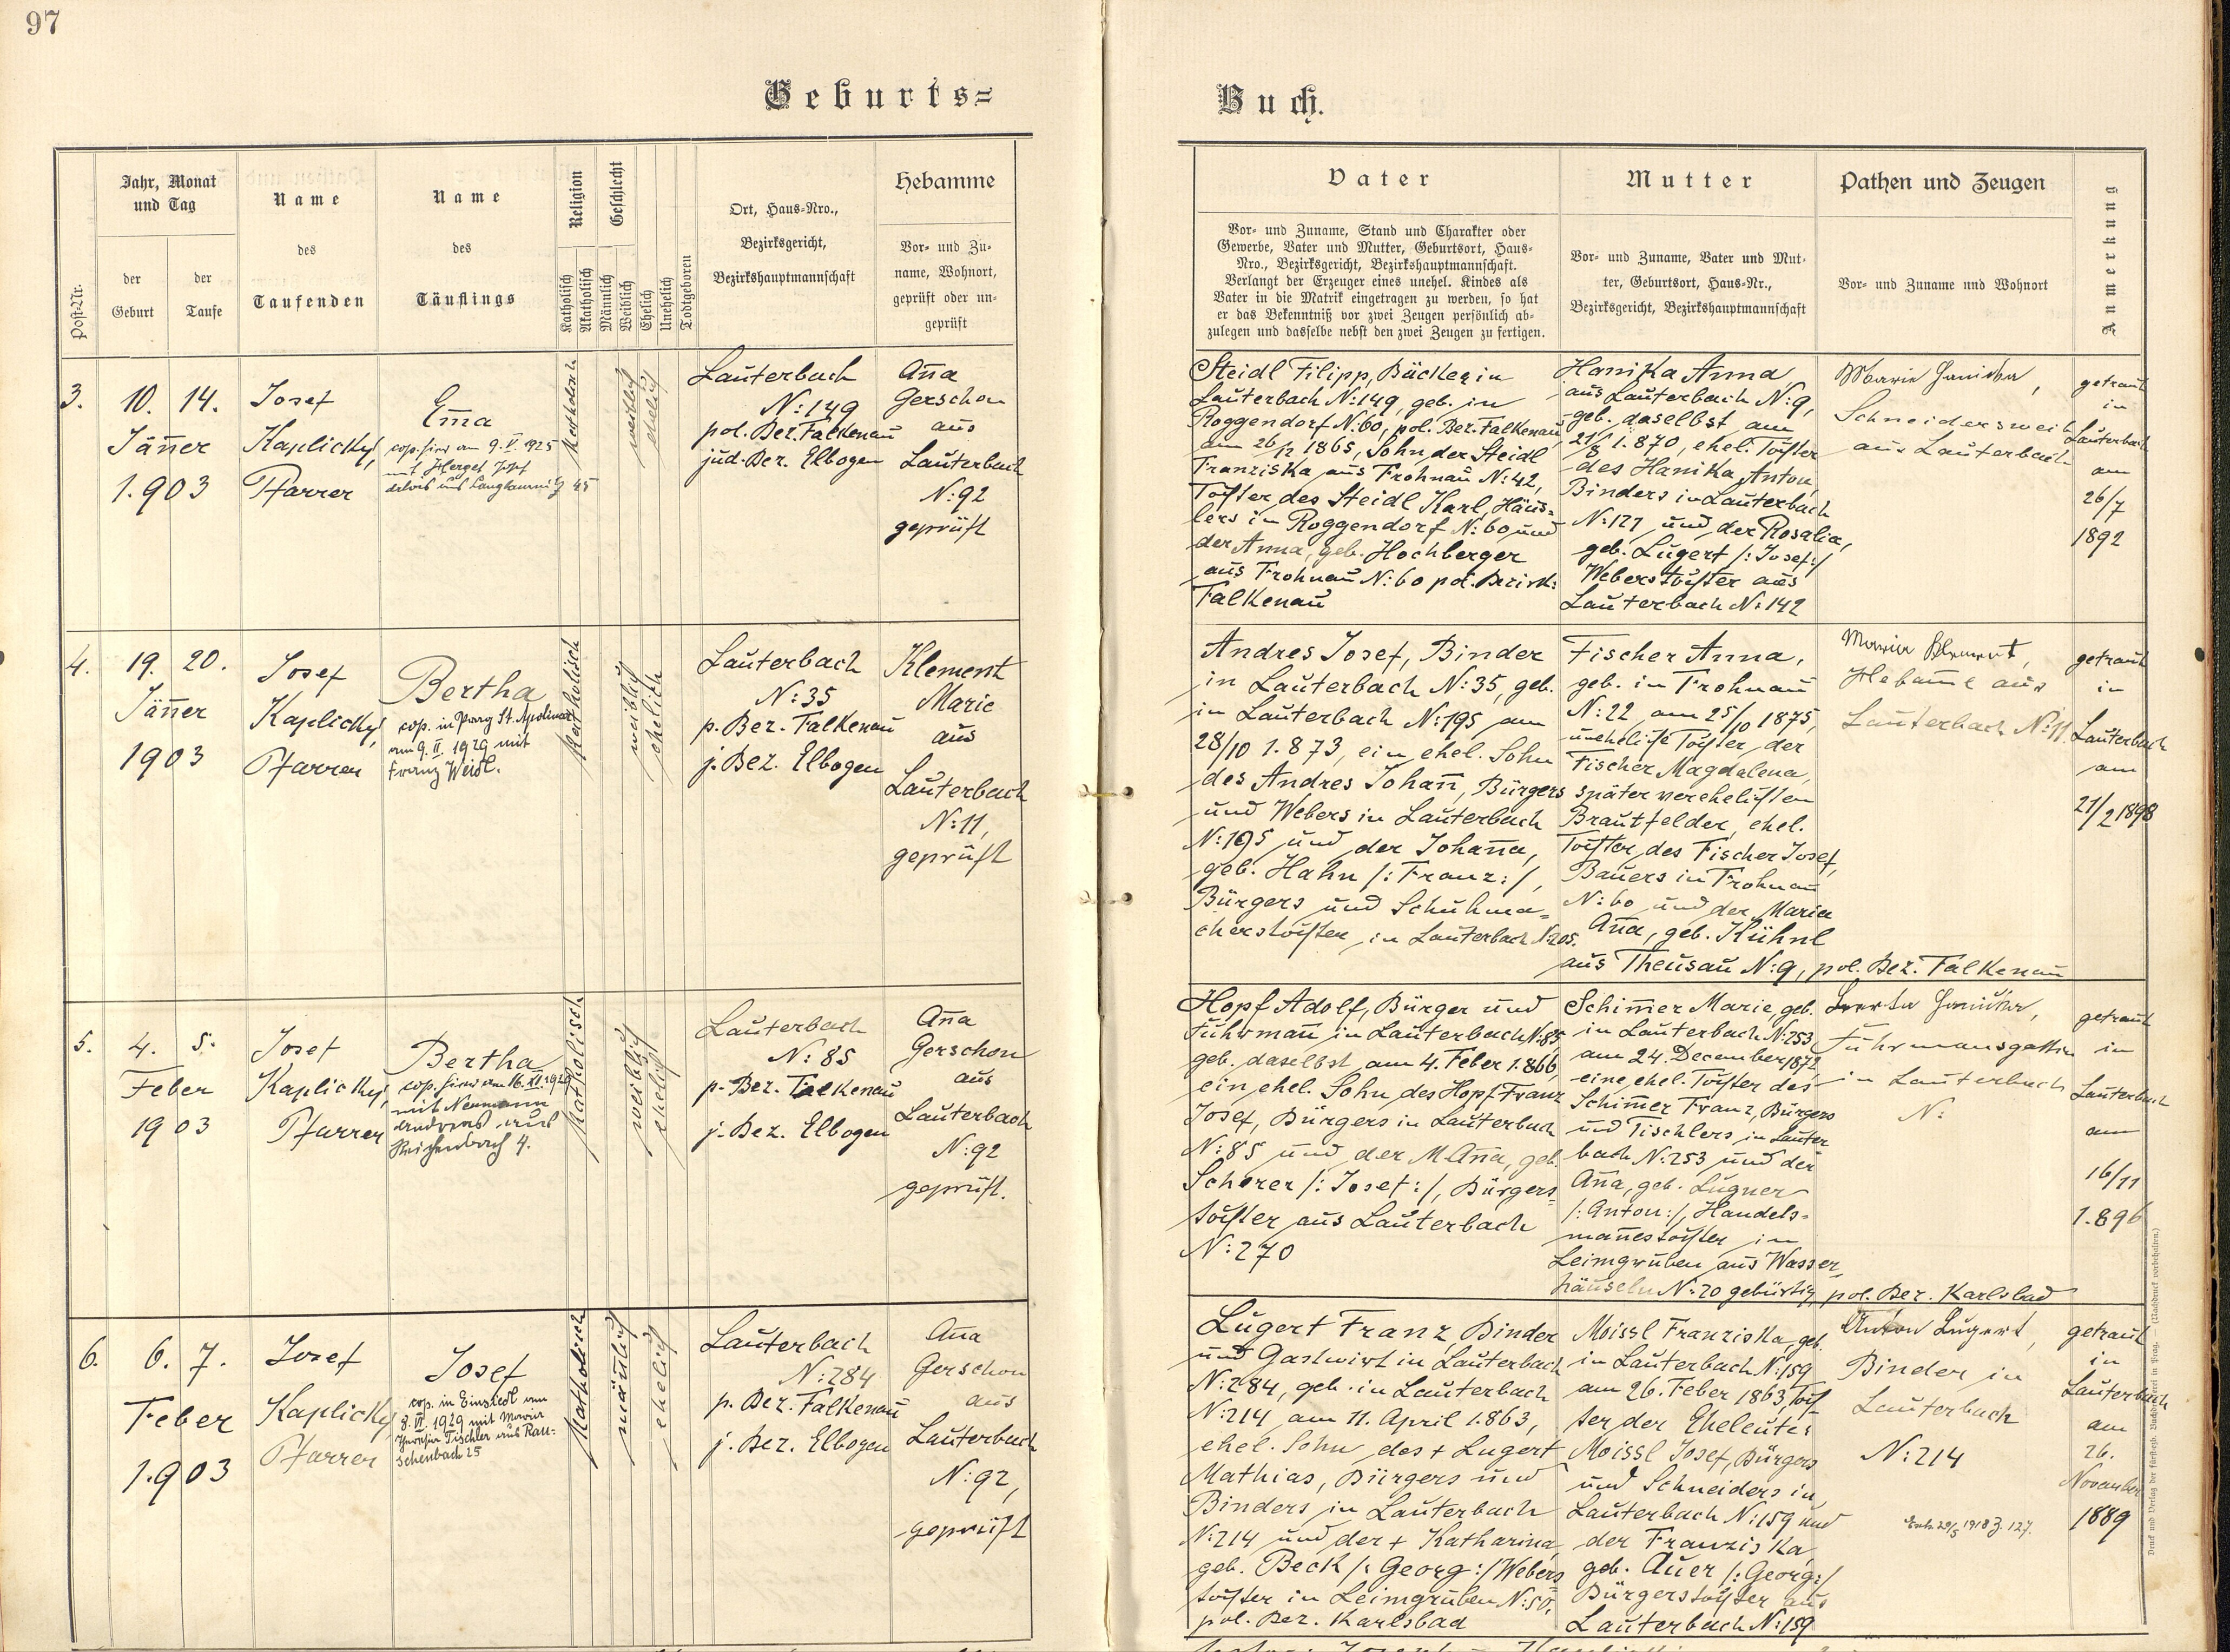 97
Geburts=
Buch.
Post-Nr.
Jahr, Monat
und Tag
der
Geburt
der
Taufe
Name
des
Taufenden
Name
des
Täuflings
Religion
Katholisch
Akatholisch
Geschlecht
Männlich
Weiblich
Ehelich
Unehelich
Todtgeboren
Ort, Haus-Nro.,
Bezirksgericht,
Bezirkshauptmannschaft
Hebamme
Vor- und Zu-
name, Wohnort,
geprüft oder un-
geprüft
Vater
Vor- und Zuname, Stand und Charakter oder
Gewerbe, Vater und Mutter, Geburtsort, Haus-
Nro., Bezirksgericht, Bezirkshauptmannschaft.
Verlangt der Erzeuger eines unehel. Kindes als
Vater in die Matrik eingetragen zu werden, so hat
er das Bekenntniß vor zwei Zeugen persönlich ab-
zulegen und dasselbe nebst den zwei Zeugen zu fertigen.
Mutter
Vor- und Zuname, Vater und Mut-
ter, Geburtsort, Haus-Nr.,
Bezirksgericht, Bezirkshauptmannschaft
Pathen und Zeugen
Vor- und Zuname und Wohnort
Anmerkung
3.
10. 14.
Jäner
1.903
Josef
Kaplický,
Pfarrer
Em̄a
cop. hier am 9. V. 1925
mit Herget Josef
45
katholisch
weiblich
ehelich
Lauterbach
N: 149
pol. Bez. Falkenau
jud. Bez. Elbogen
An̄a
Gerschon
aus
Lauterbach
N: 92
geprüft
Steidl Filipp, Bäcker in
Lauterbach N: 149, geb. in
Roggendorf N: 60, pol. Bez. Falkenau
am 26/12 1865, Sohn der Steidl
Franziska aus Frohnau N: 42,
Tochter des Steidl Karl, Häus=
lers in Roggendorf N: 60 und
der Anna, geb. Hochberger
aus Frohnau N: 60 pol. Bezirk:
Falkenau
Hanika Anna,
aus Lauterbach N: 9,
geb. daselbst am
21/8 1.870, ehel. Tochter
des Hanika Anton,
Binders in Lauterbach
N: 127 und der Rosalia,
geb. Lugert /: Josef :/
Weberstochter aus
Lauterbach N: 142
Marie Hanika,
Schneidersweib
aus Lauterbach
getraut
in
Lauterbach
am
26/7
1892
4.
19. 20.
Jän̄er
1903
Josef
Kaplický,
Pfarrer
Bertha
cop. in Prag St. Apolinar
am 9. II. 1929 mit
Franz Weidl.
katholisch
weiblich
ehelich
Lauterbach
N: 35
p. Bez. Falkenau
j. Bez. Elbogen
Klement
Marie
aus
Lauterbach
N: 11,
geprüft
Andres Josef, Binder
in Lauterbach N: 35, geb.
in Lauterbach N: 195 am
28/10 1.873, ein ehel. Sohn
des Andres Johan̄, Bürgers
und Webers in Lauterbach
N: 195 und der Johan̄a,
geb. Hahn /: Franz :/,
Bürgers und Schuhma=
cherstochter in Lauterbach N: 205.
Fischer Anna,
geb. in Frohnau
N: 22 am 25/10 1875,
uneheliche Tochter der
Fischer Magdalena,
später verehelichten
Brautfelder, ehel.
Tochter des Fischer Josef,
Bauers in Frohnau
N: 60 und der Maria
An̄a, geb. Kühnl
aus Theusau N: 9, pol. Bez. Falkenau
Marie Klement,
Hebam̄e aus
Lauterbach N: 11.
getraut
in
Lauterbach
am
21/2 1898
5.
4. 5.
Feber
1903
Josef
Kaplický,
Pfarrer
Bertha
cop. hier am 16. XI. 1929
mit Neumann
Andreas aus
Reichenbach 4.
katholisch
weiblich
ehelich
Lauterbach
N: 85
p. Bez. Falkenau
j. Bez. Elbogen
An̄a
Gerschon
aus
Lauterbach
N: 92
geprüft.
Hopf Adolf, Bürger und
Fuhrman̄ in Lauterbach N: 85
geb. daselbst am 4. Feber 1.866,
ein ehel. Sohn des Hopf Franz
Josef, Bürgers in Lauterbach
N: 85 und der M. An̄a, geb.
Scherer /: Josef :/, Bürgers=
tochter aus Lauterbach
N: 270
Schim̄er Marie, geb.
in Lauterbach N: 253
am 24. December 1872
eine ehel. Tochter des
Schim̄er Franz, Bürgers
und Tischlers in Lauter
bach N: 253 und der
An̄a, geb. Lugner
/: Anton :/, Handels=
man̄estochter in
Leimgruben aus Wasser
häuseln N: 20 gebürtig, pol. Bez. Karlsbad
Fuhrmansgattin
in Lauterbach
N:
getraut
in
Lauterbach
am
16/11
1.896
6.
6. 7.
Feber
1.903
Josef
Kaplický,
Pfarrer
Josef
cop. in Einsiedl am
8. VI. 1929 mit Maria
Tischler aus Rau=
schenbach 25
katholisch
män̄lich
ehelich
Lauterbach
N: 284
p. Bez. Falkenau
j. Bez. Elbogen
An̄a
Gerschon
aus
Lauterbach
N: 92,
geprüft
Lugert Franz, Binder
und Gastwirt in Lauterbach
N: 284, geb. in Lauterbach
N: 214 am 11. April 1.863,
ehel. Sohn des + Lugert
Mathias, Bürgers und
Binders in Lauterbach
N: 214 und der + Katharina,
geb. Beck /: Georg :/ Webers
tochter in Leimgruben N: 50,
pol. Bez. Karlsbad
Moissl Franziska, geb.
in Lauterbach N: 159
am 26. Feber 1863, Toch
ter der Eheleute
Moissl Josef, Bürgers
und Schneiders in
Lauterbach N: 159 und
der Franziska,
geb. Auer /: Georg :/
Bürgerstochter aus
Lauterbach N: 159
Anton Lugert,
Binder in
Lauterbach
N: 214
29/5 1918 Z. 127.
getraut
in
Lauterbach
am
26.
November
1889
Druck und Verlag der fürsterzb. Buchdruckerei in Prag. — (Nachdruck vorbehalten.)